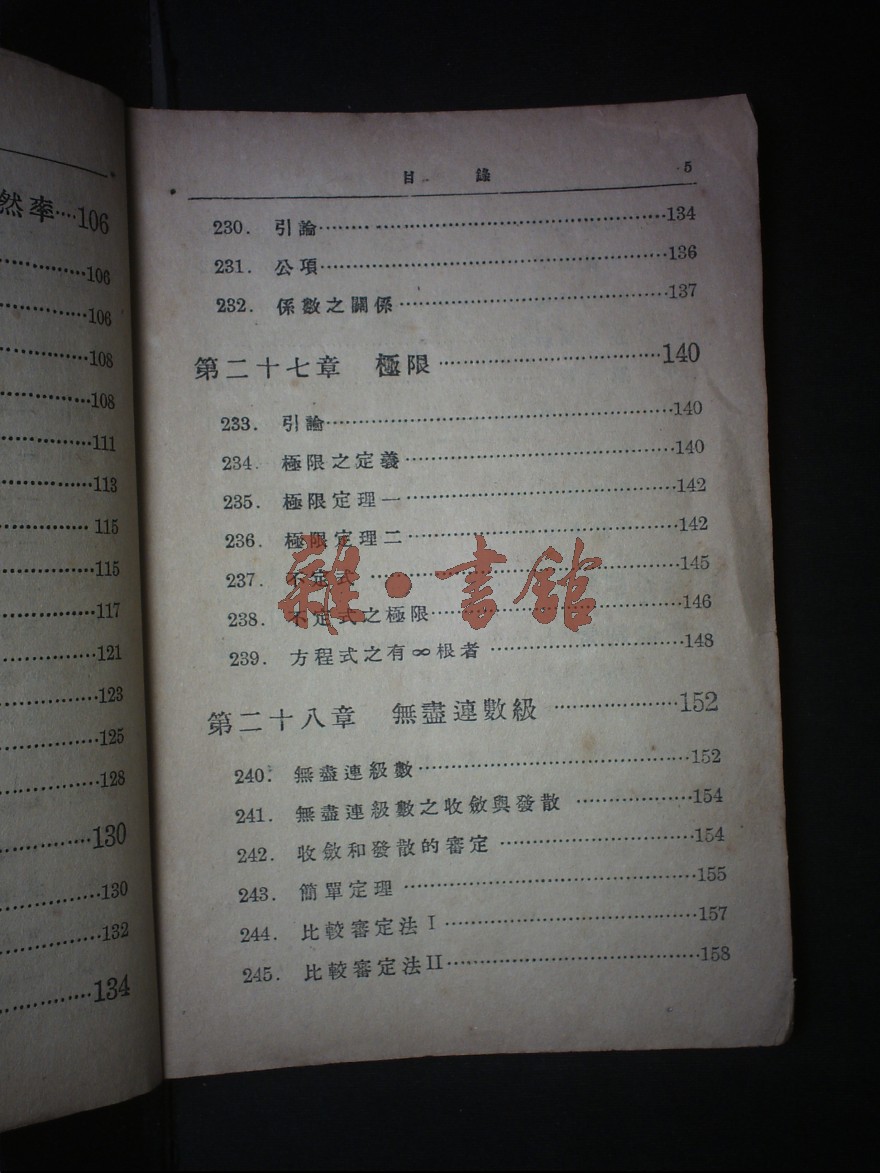 然率····106
106
106
108
108
111
113
115
115
117
121
123
125
128
130
130
132
134
目 錄 5
230. 引論 134
231. 公項 136
232. 係數之關係 137
第二十七章 極限 140
233. 引論 140
234. 極限之定義 140
235. 極限定理一 142
236. 極限定理二 142
237. 不定式 145
238. 不定式之極限 146
239. 方程式之有∞根者 148
第二十八章 無盡連數級 152
240. 無盡連級數 152
241. 無盡連級數之收斂與發散 154
242. 收斂和發散的審定 154
243. 簡單定理 155
244. 比較審定法I 157
245. 比較審定法II 158
雜·書館